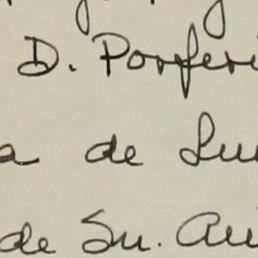 D. Porferi
a de Lui
de Su. Aui